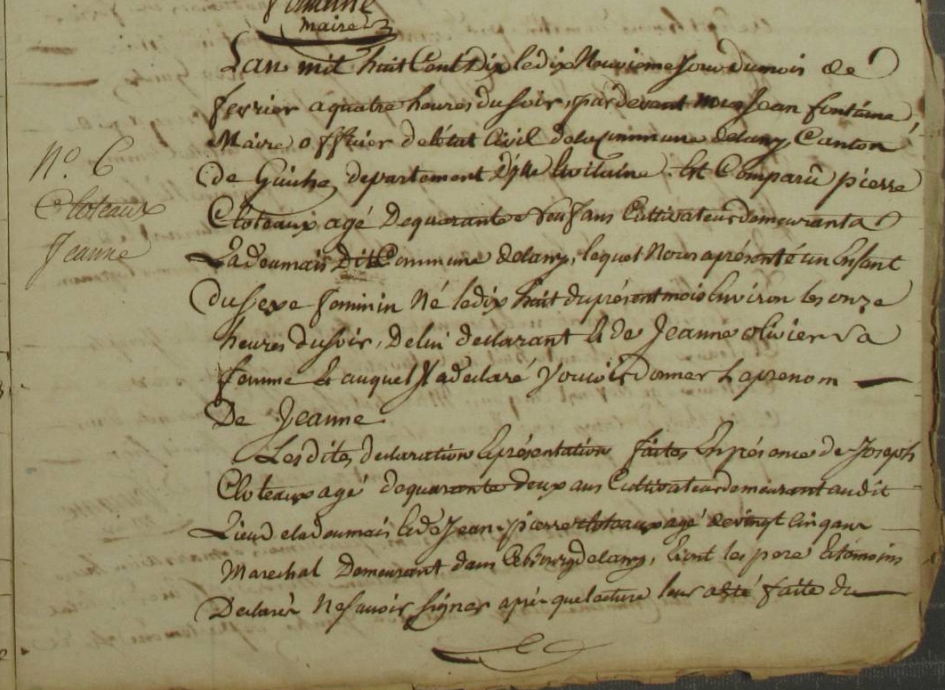 maire
L'an mil huit Cent Dix le dix Neuvieme Jour du mois de
fevrier a quatre heures du Soir, pardevant nous Jean fontaine
Maire officier de l'état Civil de la Commune de lany Canton
N.º 6
de Guiche, departement D'ille et vilaine. Est Comparû pierre
Cloteaux
Cloteaux agé De quarante Neuf ans Cultivateur demeurant a
Jeanne
La doumais Dite Commune de lany, lequel Nous a présenté un Enfant
Du Sexe feminin Né le dix huit du présent mois Environ les onze
heures du Soir, De lui declarant Et de Jeanne olivier Sa
femme Et auquel Il a declaré Vouloir donner le prenom
De Jeanne.
Les dites declaration Et présentation faites En présence de Joseph
Cloteaux agé de quarante deux ans Cultivateur demeurant audit
Lieu de la doumais Et de Jean pierre cloteaux agé de vingt Cinq ans
Marechal Demeurant dans le bourg de lany, Et ont les pere Et témoins
Declarés Ne Savoir Signer après que lecture leur a été faite du